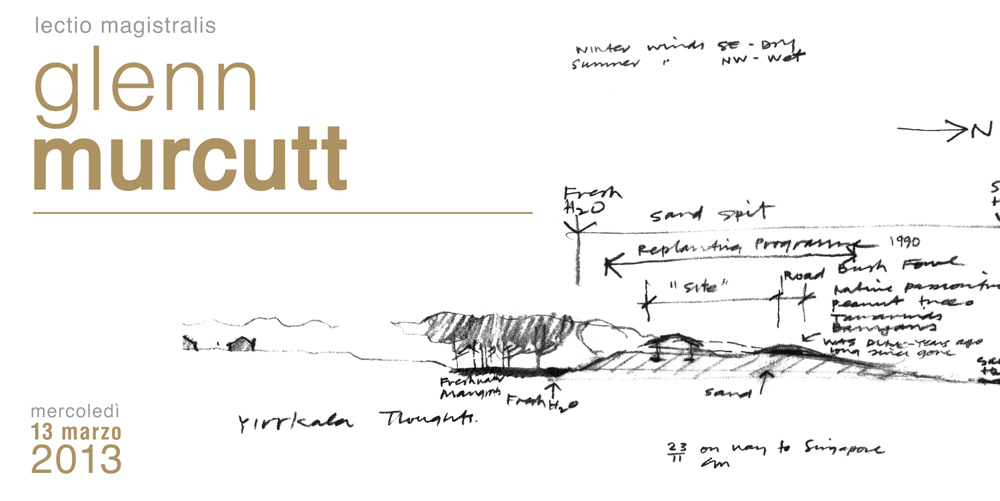 lectio magistralis
glenn
murcutt
mercoledì
13 marzo
2013
Winter winds SE - Dry
Summer " NW - Wet
N
Fresh
H2O
Sand Spit
Replanting Programme 1990
"Site"
Road
Bush Fowl
Native
Peanut trees
Tamarinds
Banyans
was Dune - years ago
long since gone
Freshwater
Mangrove
Fresh H2O
Sand
Yirrkala Thoughts.
23
11
on way to Singapore